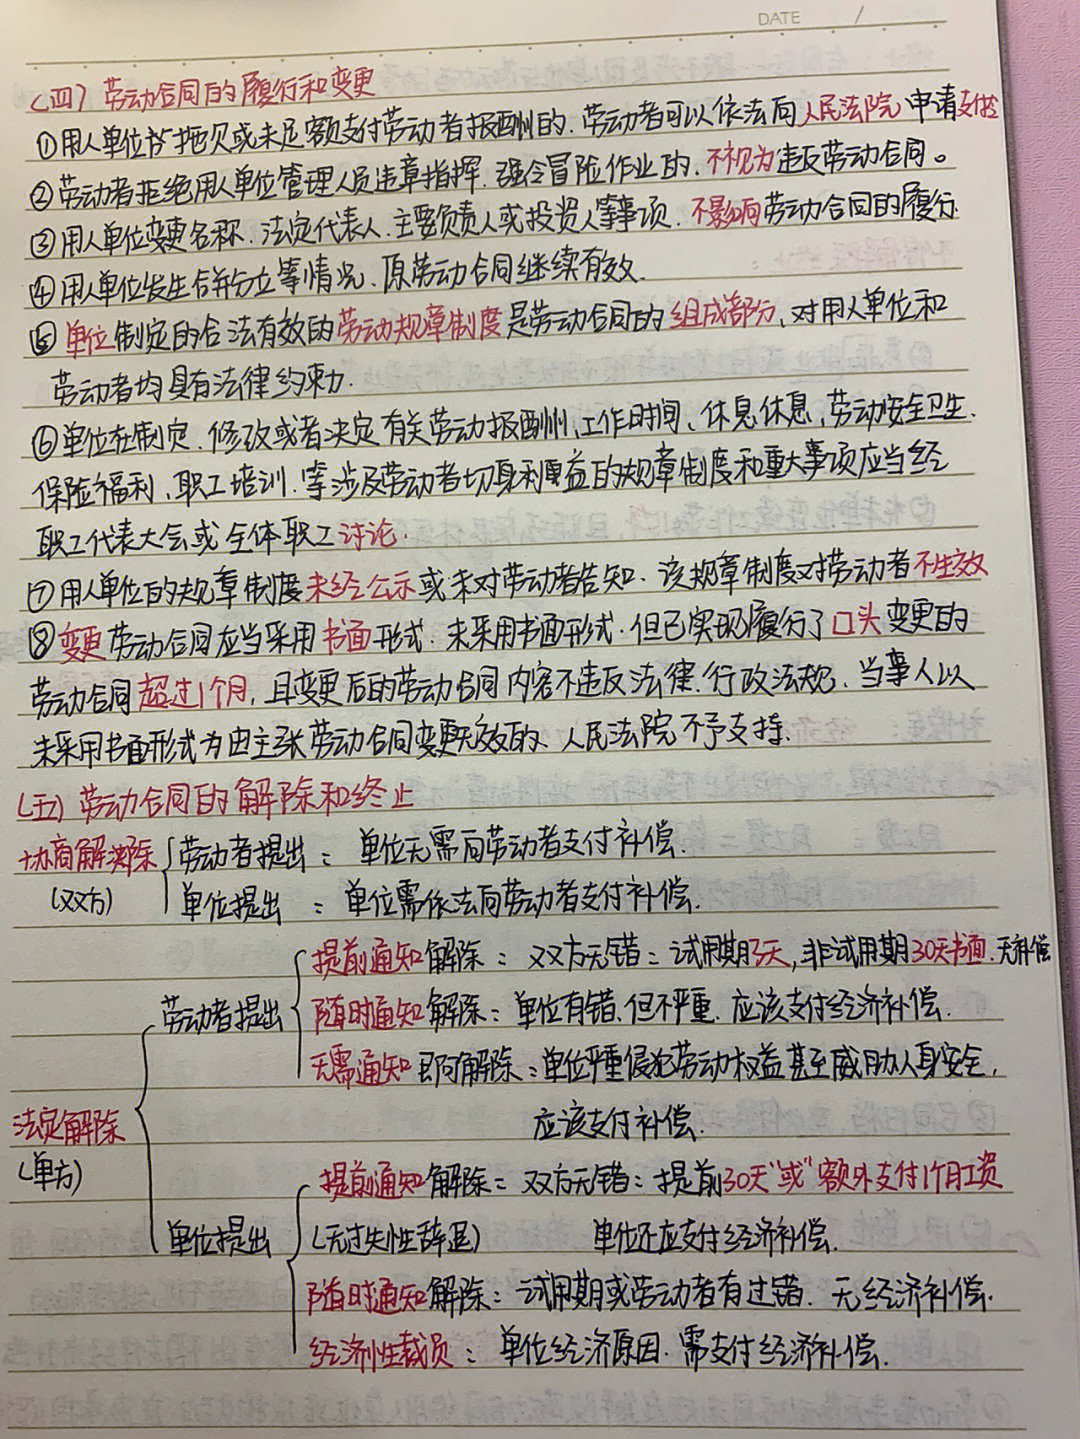 DATE /
(四)劳动合同的履行和变更
①用人单位拖欠或未足额支付劳动者报酬的.劳动者可以依法向人民法院申请支付令
②劳动者拒绝用人单位管理人员违章指挥.强令冒险作业的.不视为违反劳动合同。
③用人单位变更名称.法定代表人.主要负责人或投资人等事项.不影响劳动合同的履行.
④用人单位发生合并分立等情况.原劳动合同继续有效.
⑤单位制定的合法有效的劳动规章制度是劳动合同的组成部分,对用人单位和
劳动者均具有法律约束力.
⑥单位在制定.修改或者决定有关劳动报酬州,工作时间、休息休息,劳动安全卫生.
保险福利、职工培训.等涉及劳动者切身利益的规章制度和重大事项应当经
职工代表大会或全体职工讨论.
⑦用人单位的规章制度未经公示或未对劳动者告知.该规章制度对劳动者不生效
⑧变更劳动合同应当采用书面形式.未采用书面形式.但已实现履行了口头变更的
劳动合同超过1个月,且变更后的劳动合同内容不违反法律.行政法规、当事人以
未采用书面形式为由主张劳动合同变更无效的、人民法院不予支持.
(五)劳动合同的解除和终止
协商解除 劳动者提出：单位无需向劳动者支付补偿.
(双方) 单位提出：单位需依法向劳动者支付补偿.
提前通知解除：双方无错：试用期3天,非试用期30天书面.无补偿
劳动者提出 随时通知解除：单位有错.但不严重.应该支付经济补偿.
无需通知即可解除：单位严重侵犯劳动权益甚至威胁人身安全,
应该支付补偿.
法定解除
(单方)
提前通知解除：双方无错：提前30天"或"额外支付1个月工资
单位提出 (无过失性辞退) 单位还应支付经济补偿.
随时通知解除：试用期或劳动者有过错.无经济补偿.
经济性裁员：单位经济原因.需支付经济补偿.